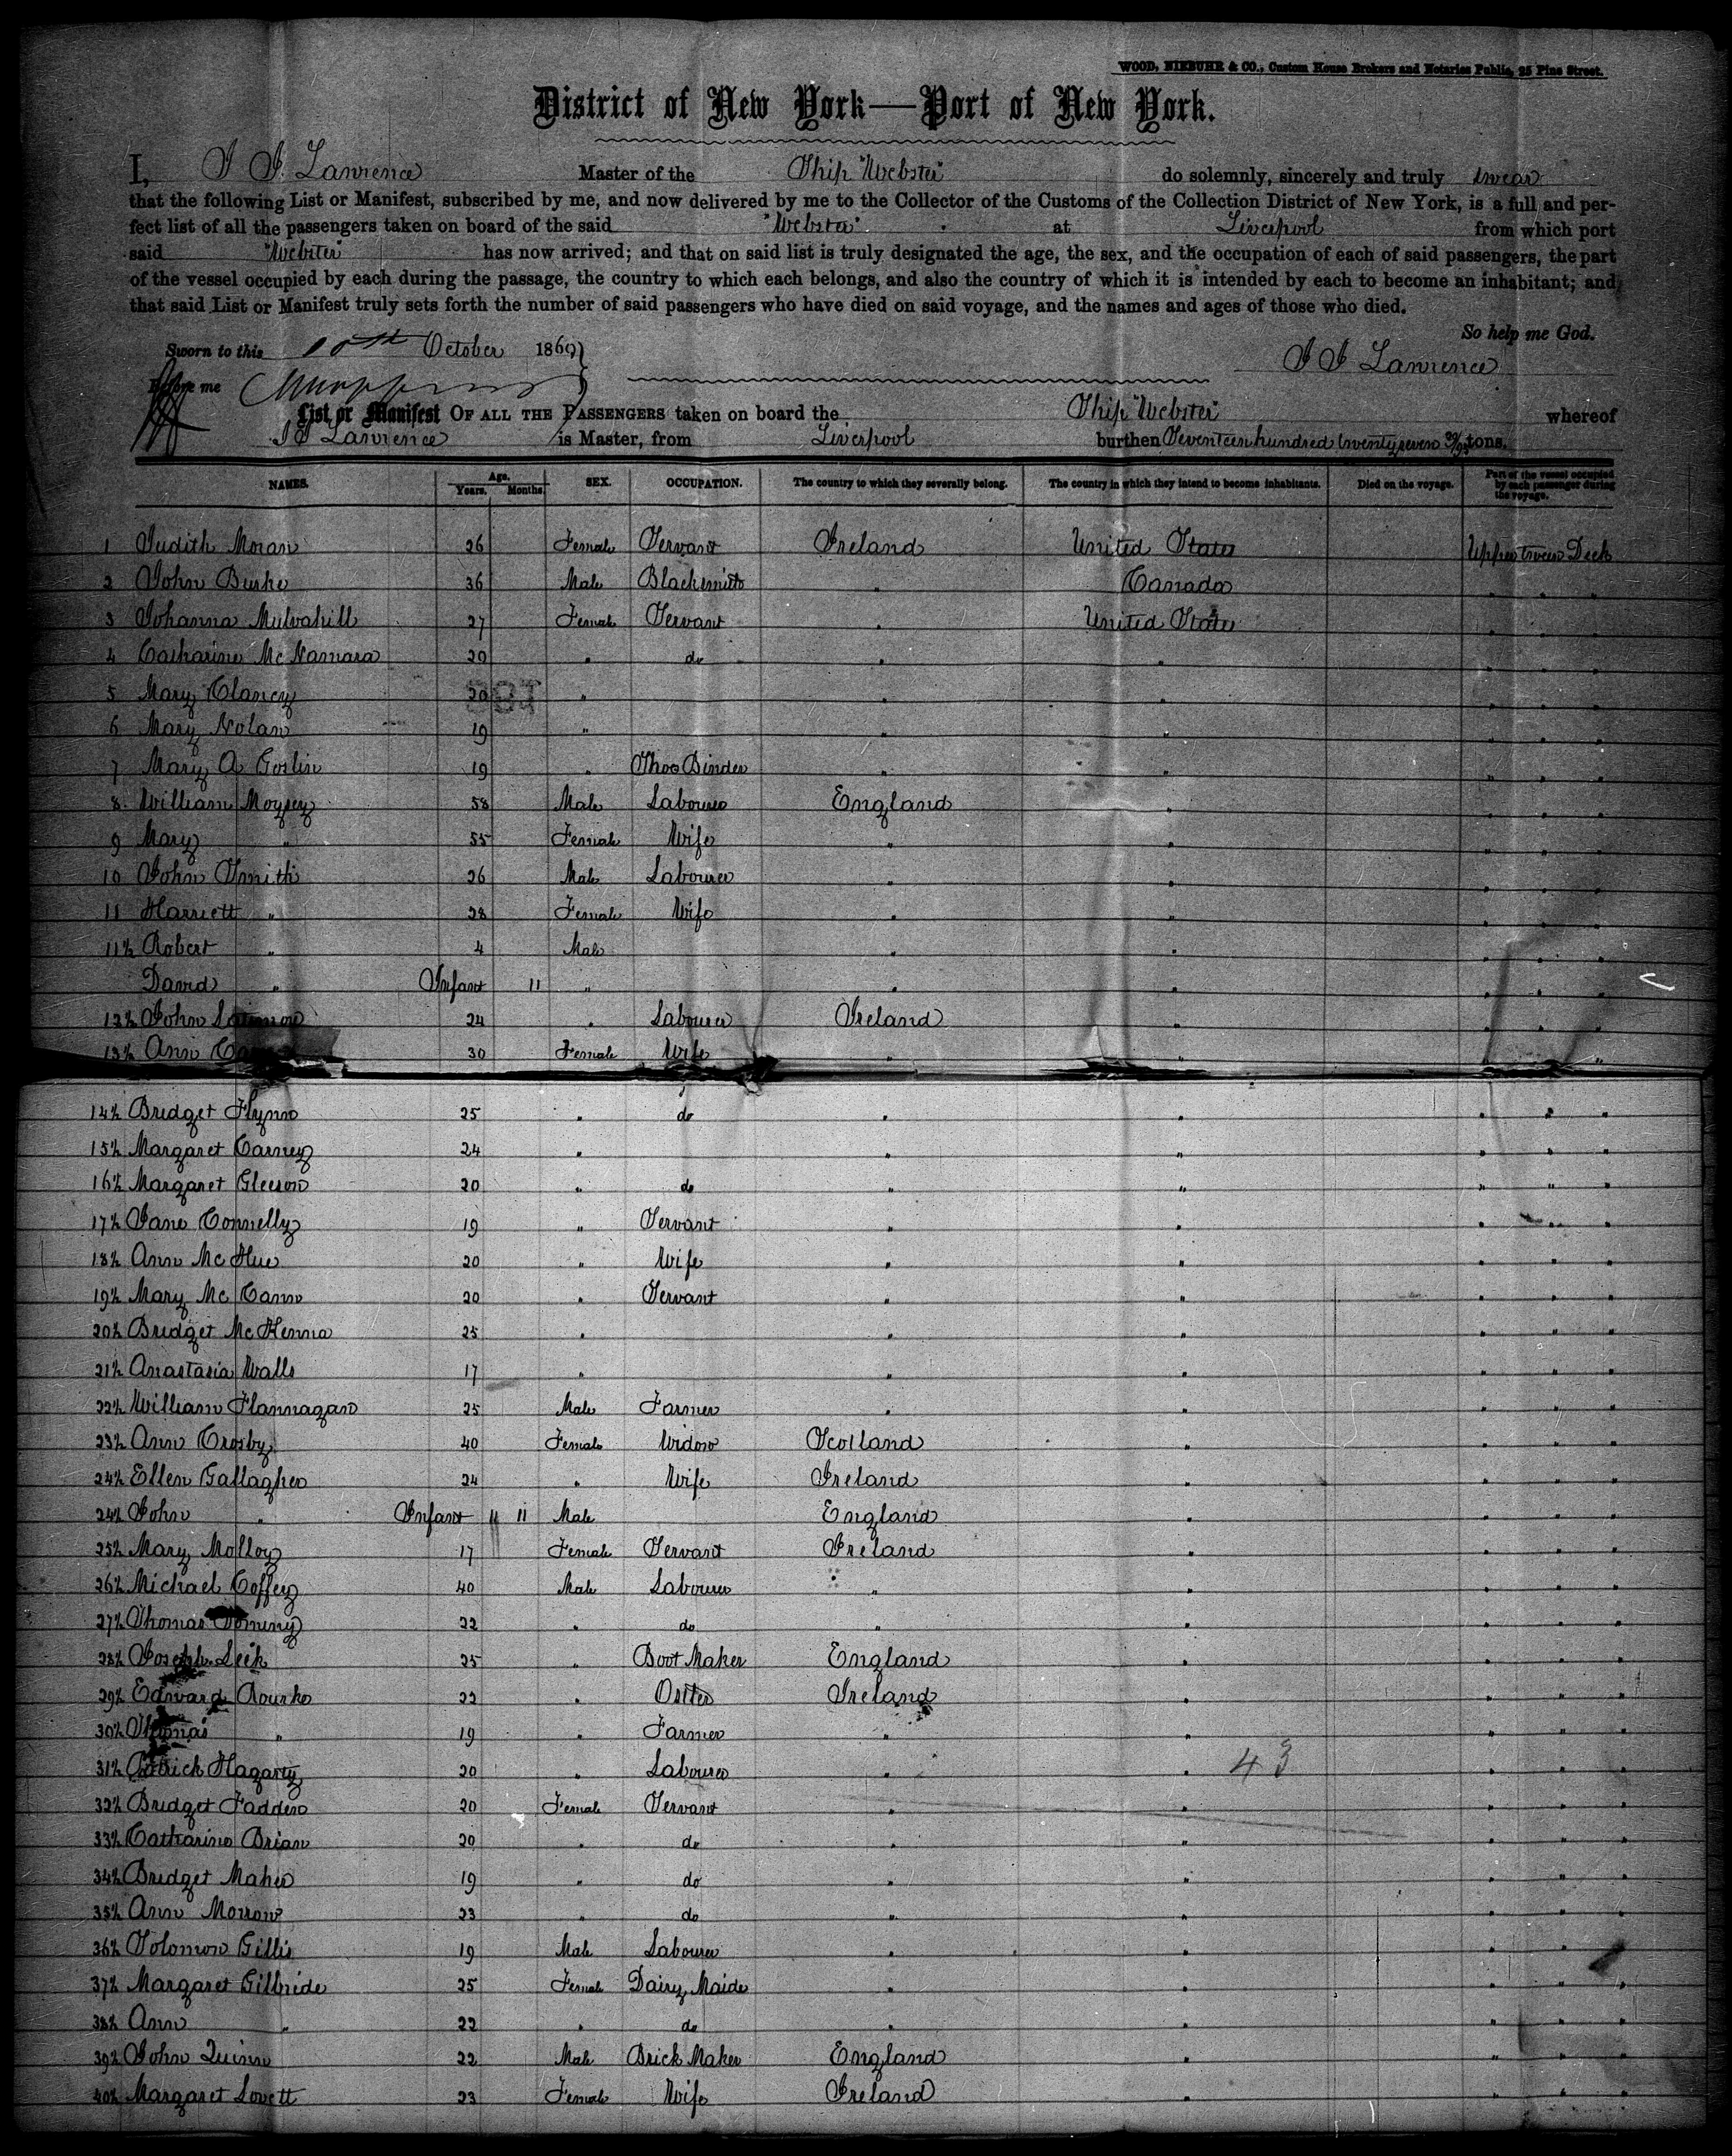 WOOD, NIEBUHR & CO., Custom House Brokers and Notaries Public, 25 Pine Street.
District of New York—Port of New York.
I, J J Lawrence Master of the Ship "Webster" do solemnly, sincerely and truly swear
that the following List or Manifest, subscribed by me, and now delivered by me to the Collector of the Customs of the Collection District of New York, is a full and per-
fect list of all the passengers taken on board of the said "Webster" at Liverpool from which port
said "Webster" has now arrived; and that on said list is truly designated the age, the sex, and the occupation of each of said passengers, the part
of the vessel occupied by each during the passage, the country to which each belongs, and also the country of which it is intended by each to become an inhabitant; and
that said List or Manifest truly sets forth the number of said passengers who have died on said voyage, and the names and ages of those who died.
So help me God.
Sworn to this October 1869
J J Lawrence
Before me
List or Manifest OF ALL THE PASSENGERS taken on board the Ship "Webster" whereof
J J Lawrence is Master, from Liverpool burthen Seventeen hundred twenty seven tons.
NAMES. Age. Years. Months. SEX. OCCUPATION. The country to which they severally belong. The country in which they intend to become inhabitants. Died on the voyage. Part of the vessel occupied by each passenger during the voyage.
1 Judith Moran 26 Female Servant Ireland United States Upper tween Deck
2 John Burke 36 Male Blacksmith " Canada " " "
3 Johanna Mulvahill 27 Female Servant " United States " " "
4 Catharine McNamara 20 " do " " " " "
5 Mary Clancy 20 " " " " " "
6 Mary Nolan 19 " " " " " "
7 Mary A Goslin 19 " Shoe Binder " " " " "
8 William Moysey 58 Male Labourer England " " " "
9 Mary " 55 Female Wife " " " " "
10 John Smith 26 Male Labourer " " " " "
11 Harriett " 28 Female Wife " " " " "
11½ Robert " 4 Male " " " " "
David " Infant 11 " " " " " "
12½ John 24 " Labourer Ireland " " " "
13½ Ann 30 Female Wife " " "
14½ Bridget Flynn 25 " do " " " " "
15½ Margaret Carney 24 " " " " " "
16½ Margaret Gleeson 20 " do " " " " "
17½ Jane Connelly 19 " Servant " " " " "
18½ Ann McHue 20 " Wife " " " " "
19½ Mary McCann 20 " Servant " " " " "
20½ Bridget McKenna 25 " " " " " "
21½ Anastasia Walls 17 " " " " " "
22½ William Flannagan 25 Male Farmer " " " " "
23½ Ann Crosby 40 Female Widow Scotland " " " "
24½ Ellen Gallagher 24 " Wife Ireland " " " "
24½ John " Infant 11 Male England " " " "
25½ Mary Molloy 17 Female Servant Ireland " " " "
26½ Michael Coffey 40 Male Labourer " " " " "
27½ Thomas 22 " do " " " " "
28½ Joseph Leek 25 " Boot Maker England " " " "
29½ Edward Rourke 22 " Ostler Ireland " " " "
30½ Thomas " 19 " Farmer " " " " "
31½ Patrick Hagarty 20 " Labourer " " 43 " " "
32½ Bridget Fadden 20 Female Servant " " " " "
33½ Catharine Brian 20 " do " " " " "
34½ Bridget Maher 19 " do " " " " "
35½ Ann Morrow 23 " do " " " " "
36½ Solomon Gillis 19 Male Labourer " " " " "
37½ Margaret Gilbride 25 Female Dairy Maide " " " " "
38½ Ann " 22 " do " " " " "
39½ John Quinn 22 Male Brick Maker England " " " "
40½ Margaret Lovett 23 Female Wife Ireland " " " "